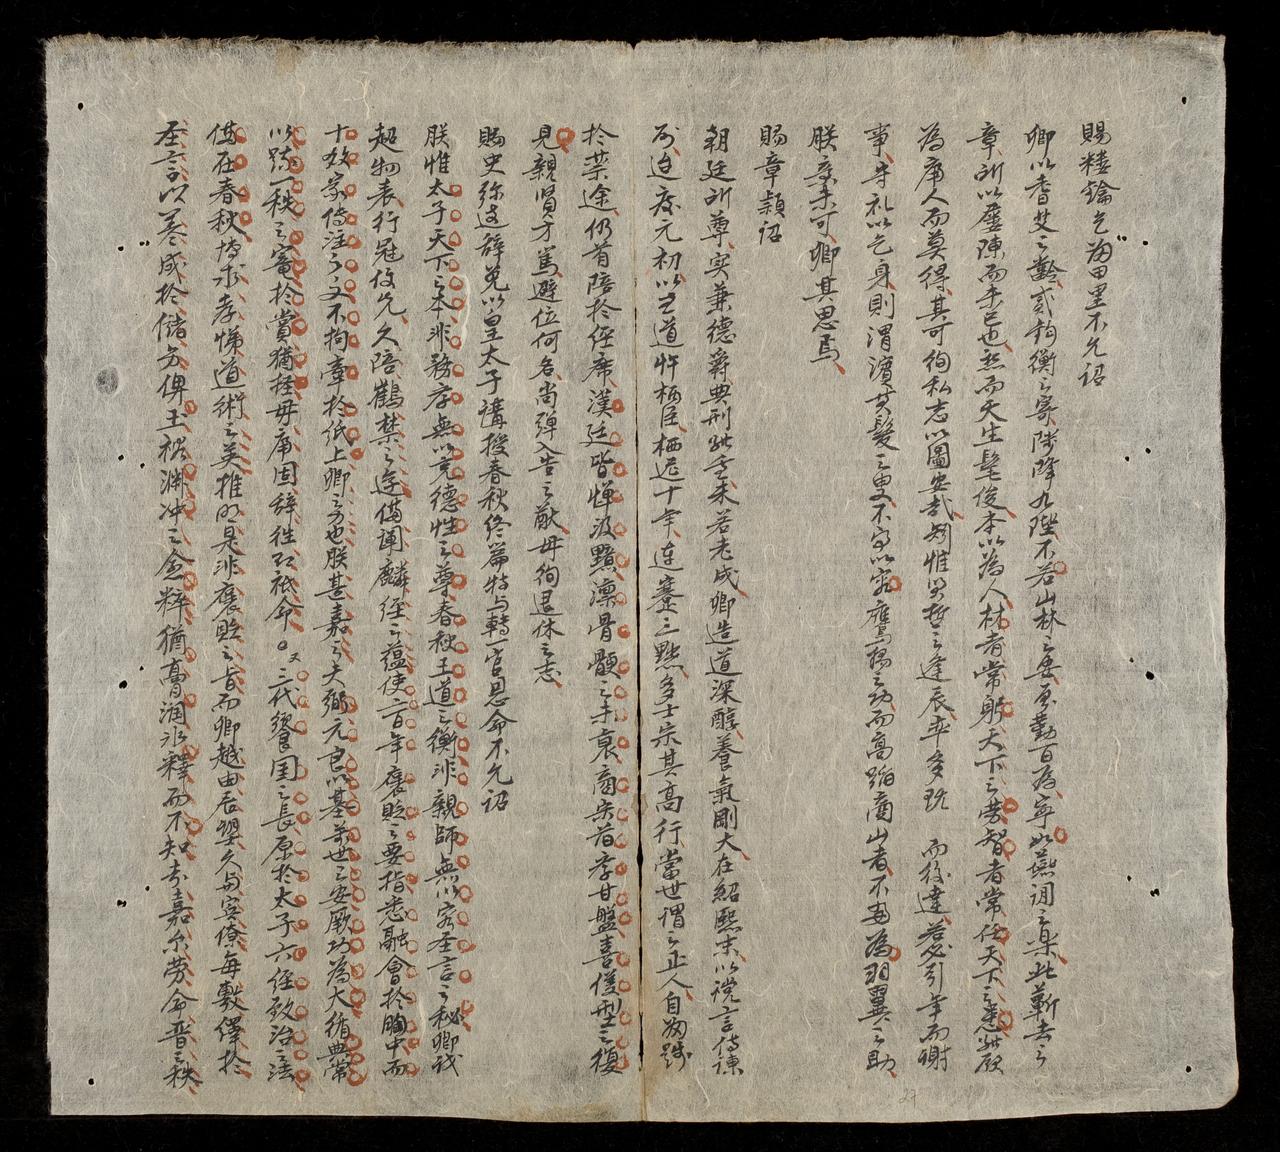 賜樓鑰乞歸田里不允詔
卿以耆艾之齡貳鈞衡之寄陟降九陛不若山林之安夙勤百為寧如燕閒之樂此蘄去之
章所以屢陳而未已也然而天生髦俊本以為人材者常躬天下之勞智者常任天下之患
為庸人而莫得其可徇私志以圖安哉矧惟賢哲之逢辰率多 而後達若必引年而謝
事守礼以乞身則渭濱其髮之叟不 以 鷹揚之功而高蹈商山者不 為羽翼之助
朕意未可卿其思焉
賜章穎詔
朝廷所尊实兼德爵典刑 未若老成卿造道深醇養氣剛大在紹熙末以讜言侍諫
列迨慶元初以直道忤柄臣栖遲十年連蹇三黜多士宗其高行當世謂之正人自 踐
於榮途仍首陪於經席漢廷皆憚汲黯凜骨骾之未衰商宗首孝甘盤喜儀型之復
見親賢方篤避位何名尚殫入告之猷毋徇退休之志
賜史弥遠辭免以皇太子講授春秋終篇特与轉一官恩命不允詔
朕惟太子天下之本非務学無以克德性之尊春秋王道之衡非親師無以究圣言之秘卿識
超物表行冠伎允久陪鶴禁之遊備闡麟經之蘊使二百年褒貶之要指悉融會於胸中而
十數家傳注之文不拘牽於紙上卿之力也朕甚嘉之夫弼元良以基萬世之安厥功為大循典常
以疏一秩之寵於賞猶輕毋庸固辞往祗命。又三代饗国之長原於太子六經致治之法
備在春秋傳求孝悌道術之美推明是非褒貶之旨而卿越由居望久与宮僚每敷繹於
圣言以養成於儲 俾玉裕淵冲之念粹猶膏潤冰釋而不知 嘉尔劳命晋之秩